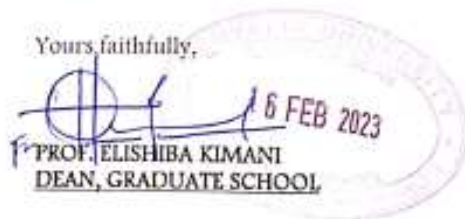 Yours faithfully,
16 FEB 2023
PROF. ELISHIBA KIMANI
DEAN, GRADUATE SCHOOL